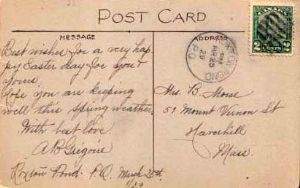 POST CARD
MESSAGE
ADDRESS
Best wishes for a very hap-
py Easter day for you &
yours.
Hope you are keeping
well this spring weather.
With best love,
A.
Pond. P.Q. March 26th
/29
POND
P.Q.
29
CANADA
2 2
CENTS
Mrs. B. Morse
51 Mount Vernon St
Haverhill
Mass